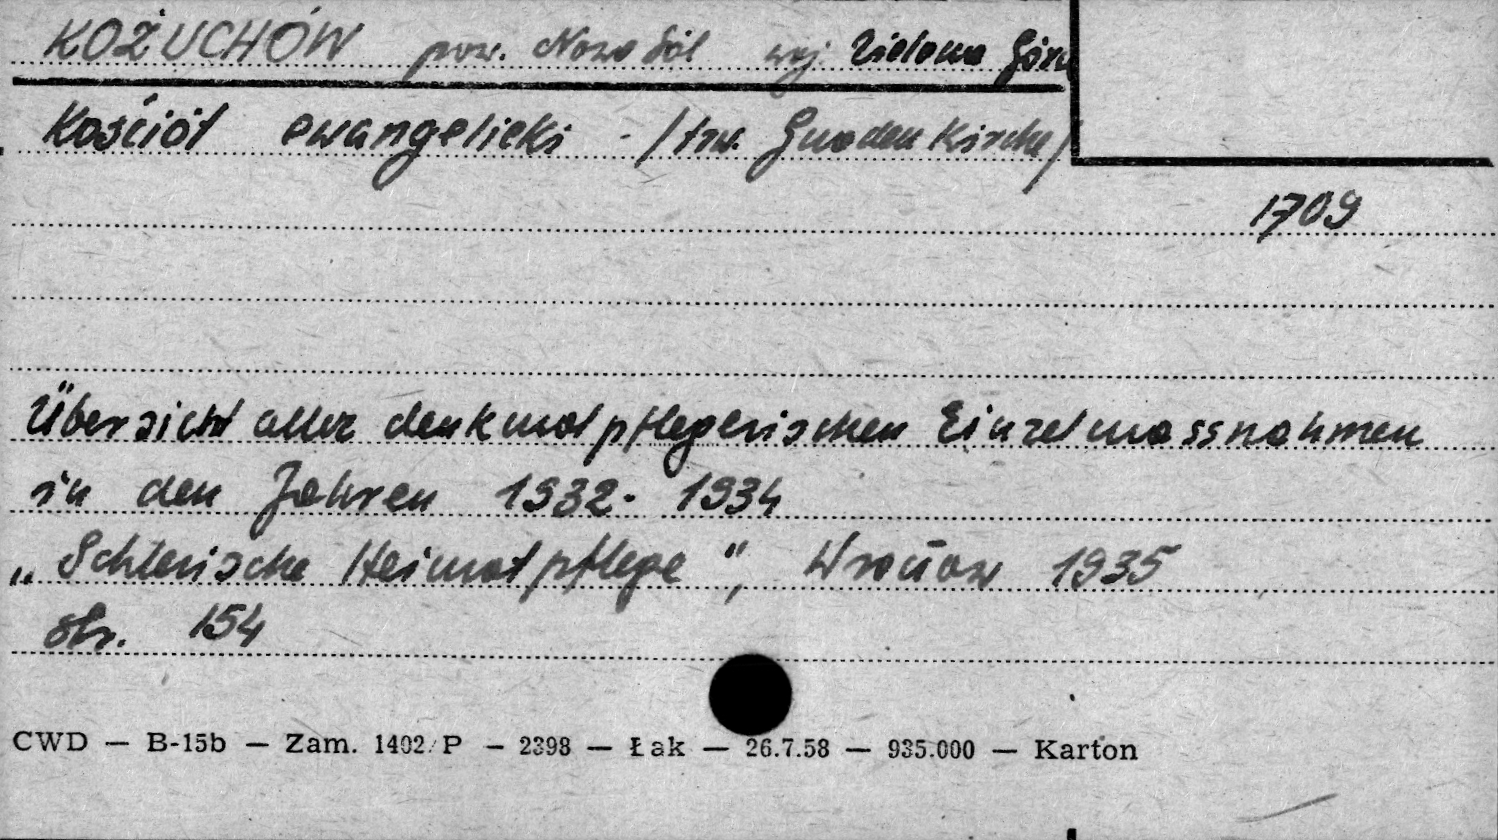 KOŻUCHÓW pow. Nowa Sól woj. Zielona Góra
Kościół ewangelicki - /tzw. Gnadenkirche/
1709
Übersicht aller denkmalpflegerischen Einzelmassnahmen
in den Jahren 1932-1934
„Schlesische Heimatpflege", Wrocław 1935
str. 154
CWD — B-15b — Zam. 1402/P — 2398 — Łak — 26.7.58 — 935.000 — Karton